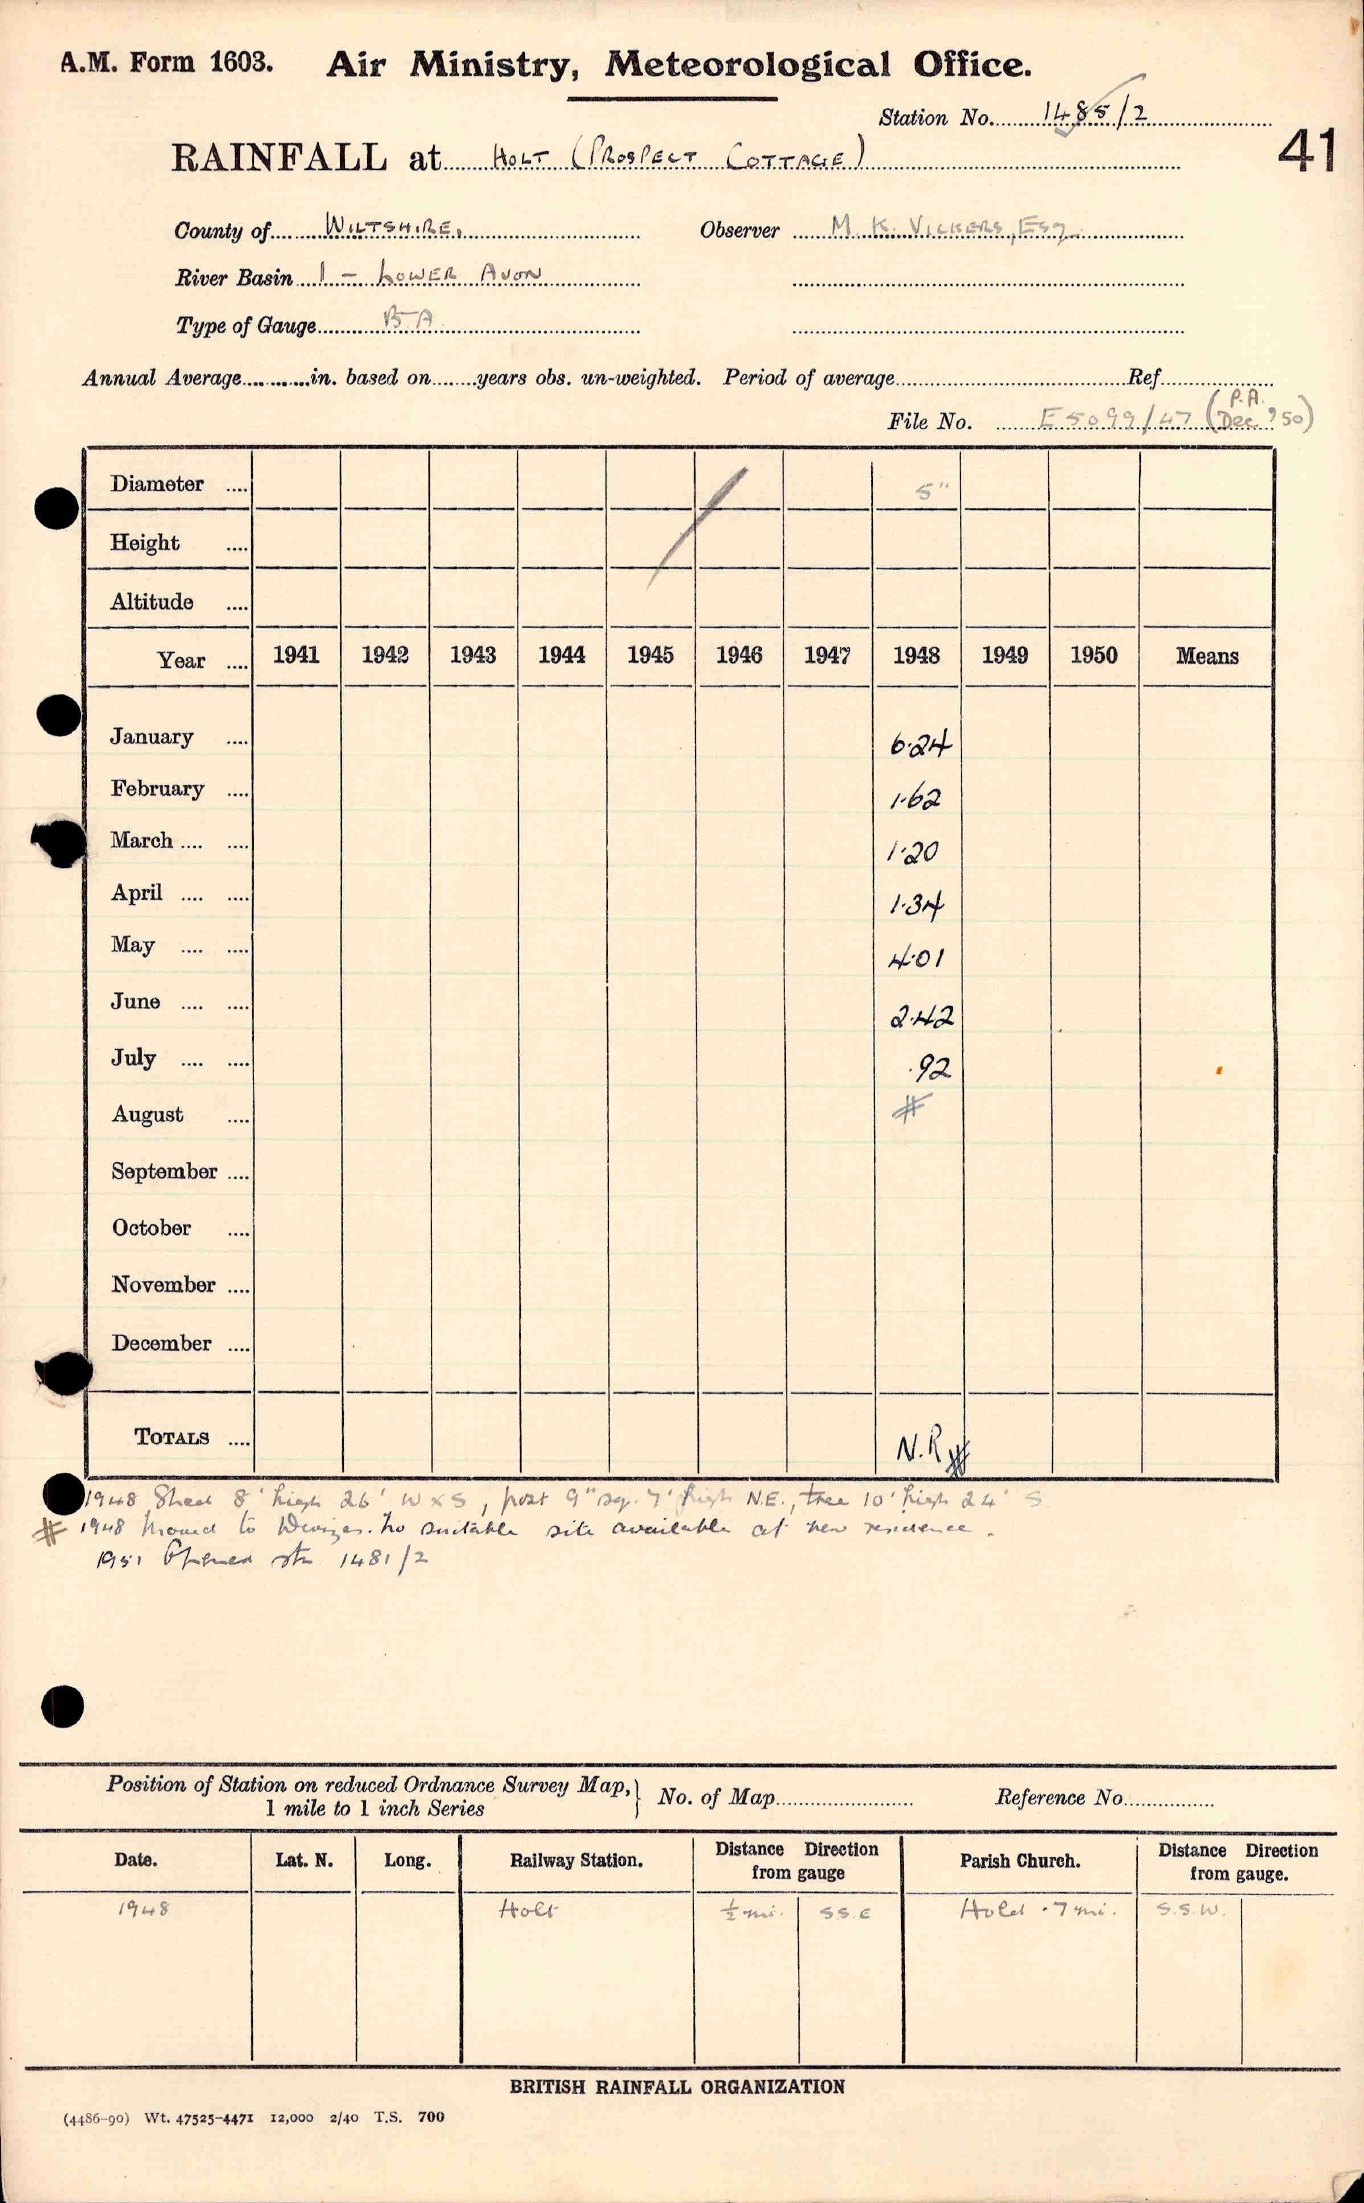 A.M. Form 1603. Air Ministry, Meteorological Office.
Station No. 1485/2
RAINFALL at HOLT (PROSPECT COTTAGE) 41
County of WILTSHIRE. Observer M. K. VICKERS, ESQ
River Basin 1 - LOWER AVON
Type of Gauge BA
Annual Average in. based on years obs. un-weighted. Period of average Ref.
File No. E5099/47 (P.A. Dec '50)
Diameter 5"
Height
Altitude
Year 1941 1942 1943 1944 1945 1946 1947 1948 1949 1950 Means
January 6.24
February 1.62
March 1.20
April 1.34
May 4.01
June 2.42
July .92
August #
September
October
November
December
TOTALS N.R #
1948 Shed 8' high 26' W x S, post 9" sq. 7' high N.E., tree 10' high 24' S.
# 1948 Moved to Devizes. No suitable site available at new residence.
1951 Opened stn 1481/2
Position of Station on reduced Ordnance Survey Map, } No. of Map Reference No.
1 mile to 1 inch Series
Date. Lat. N. Long. Railway Station. Distance Direction from gauge Parish Church. Distance Direction from gauge.
1948 Holt ½ mi. S.S.E Hold .7 mi. S.S.W.
BRITISH RAINFALL ORGANIZATION
(4486-90) Wt. 47525-4471 12,000 2/40 T.S. 700